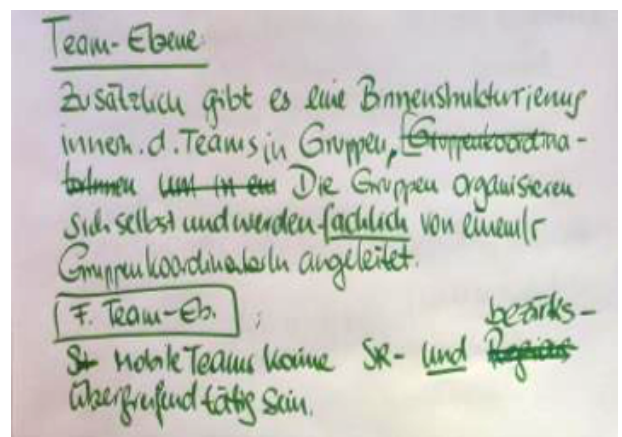 Team-Ebene:
Zusätzlich gibt es eine Binnenstrukturierung
innerh. d. Teams in Gruppen, Gruppenkoordina-
torInnen und in ein Die Gruppen organisieren
sich selbst und werden fachlich von einem/r
GruppenkoordinatorIn angeleitet.
F. Team-Eb. :
bezirks-
St mobile Teams können SR- und Regions
übergreifend tätig sein.